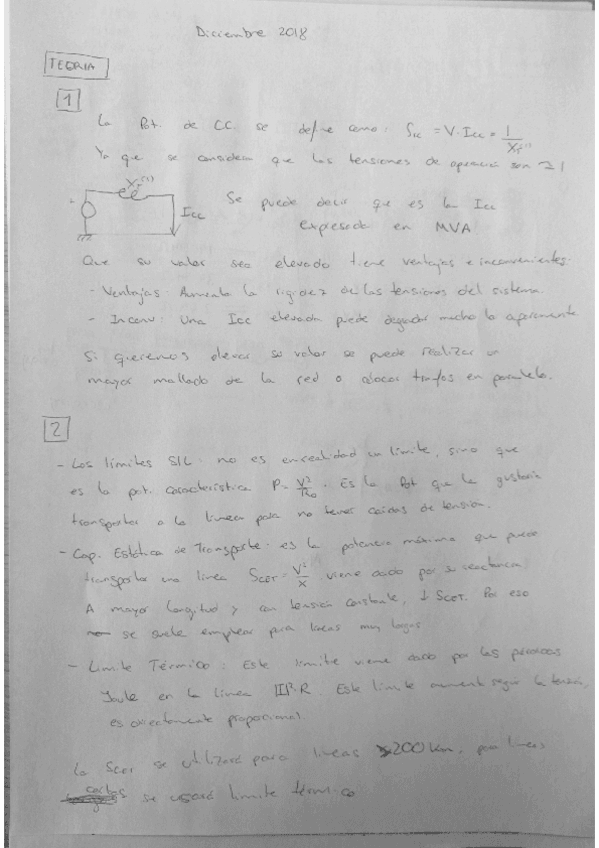 Diciembre 2018
TEORIA
1
La Pot. de CC. se define como: Scc = V·Icc = 1/X_T^(1)
Ya que se considera que las tensiones de operación son ≈1
X_T^(1)
Icc
Se puede decir que es la Icc
expresada en MVA
Que su valor sea elevado tiene ventajas e inconvenientes:
- Ventajas: Aumenta la rigidez de las tensiones del sistema.
- Inconv: Una Icc elevada puede degradar mucho la aparamenta
Si queremos elevar su valor se puede realizar un
mayor mallado de la red o colocar trafos en paralelo.
2
- Los límites SIL: no es en realidad un límite, sino que
es la pot. característica P = V²/R₀. Es la Pot que le gustaría
transportar a la línea para no tener caídas de tensión.
- Cap. Estática de Transporte: es la potencia máxima que puede
transportar una línea SCET = V²/X viene dado por su reactancia
A mayor longitud y con tensión constante, ↓ SCET. Por eso
se suele emplear para líneas muy largas
- Límite Térmico: Este límite viene dado por las pérdidas
Joule en la línea |I|²·R. Este límite aument según la tensión,
es directamente proporcional.
La SCET se utilizará para líneas >200 km, para líneas
cortas se usará límite térmico